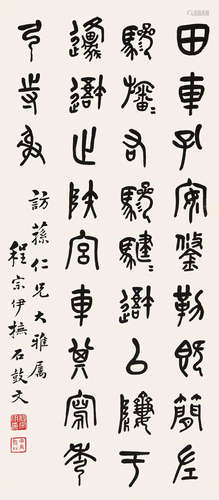 田車孔安鋚勒既簡左
驂旛〻右驂騝〻䢒以隮于
邍䢒止陝宮車其寫秀
弓寺射
訪蓀仁兄大雅屬
程宗伊撫石鼓文